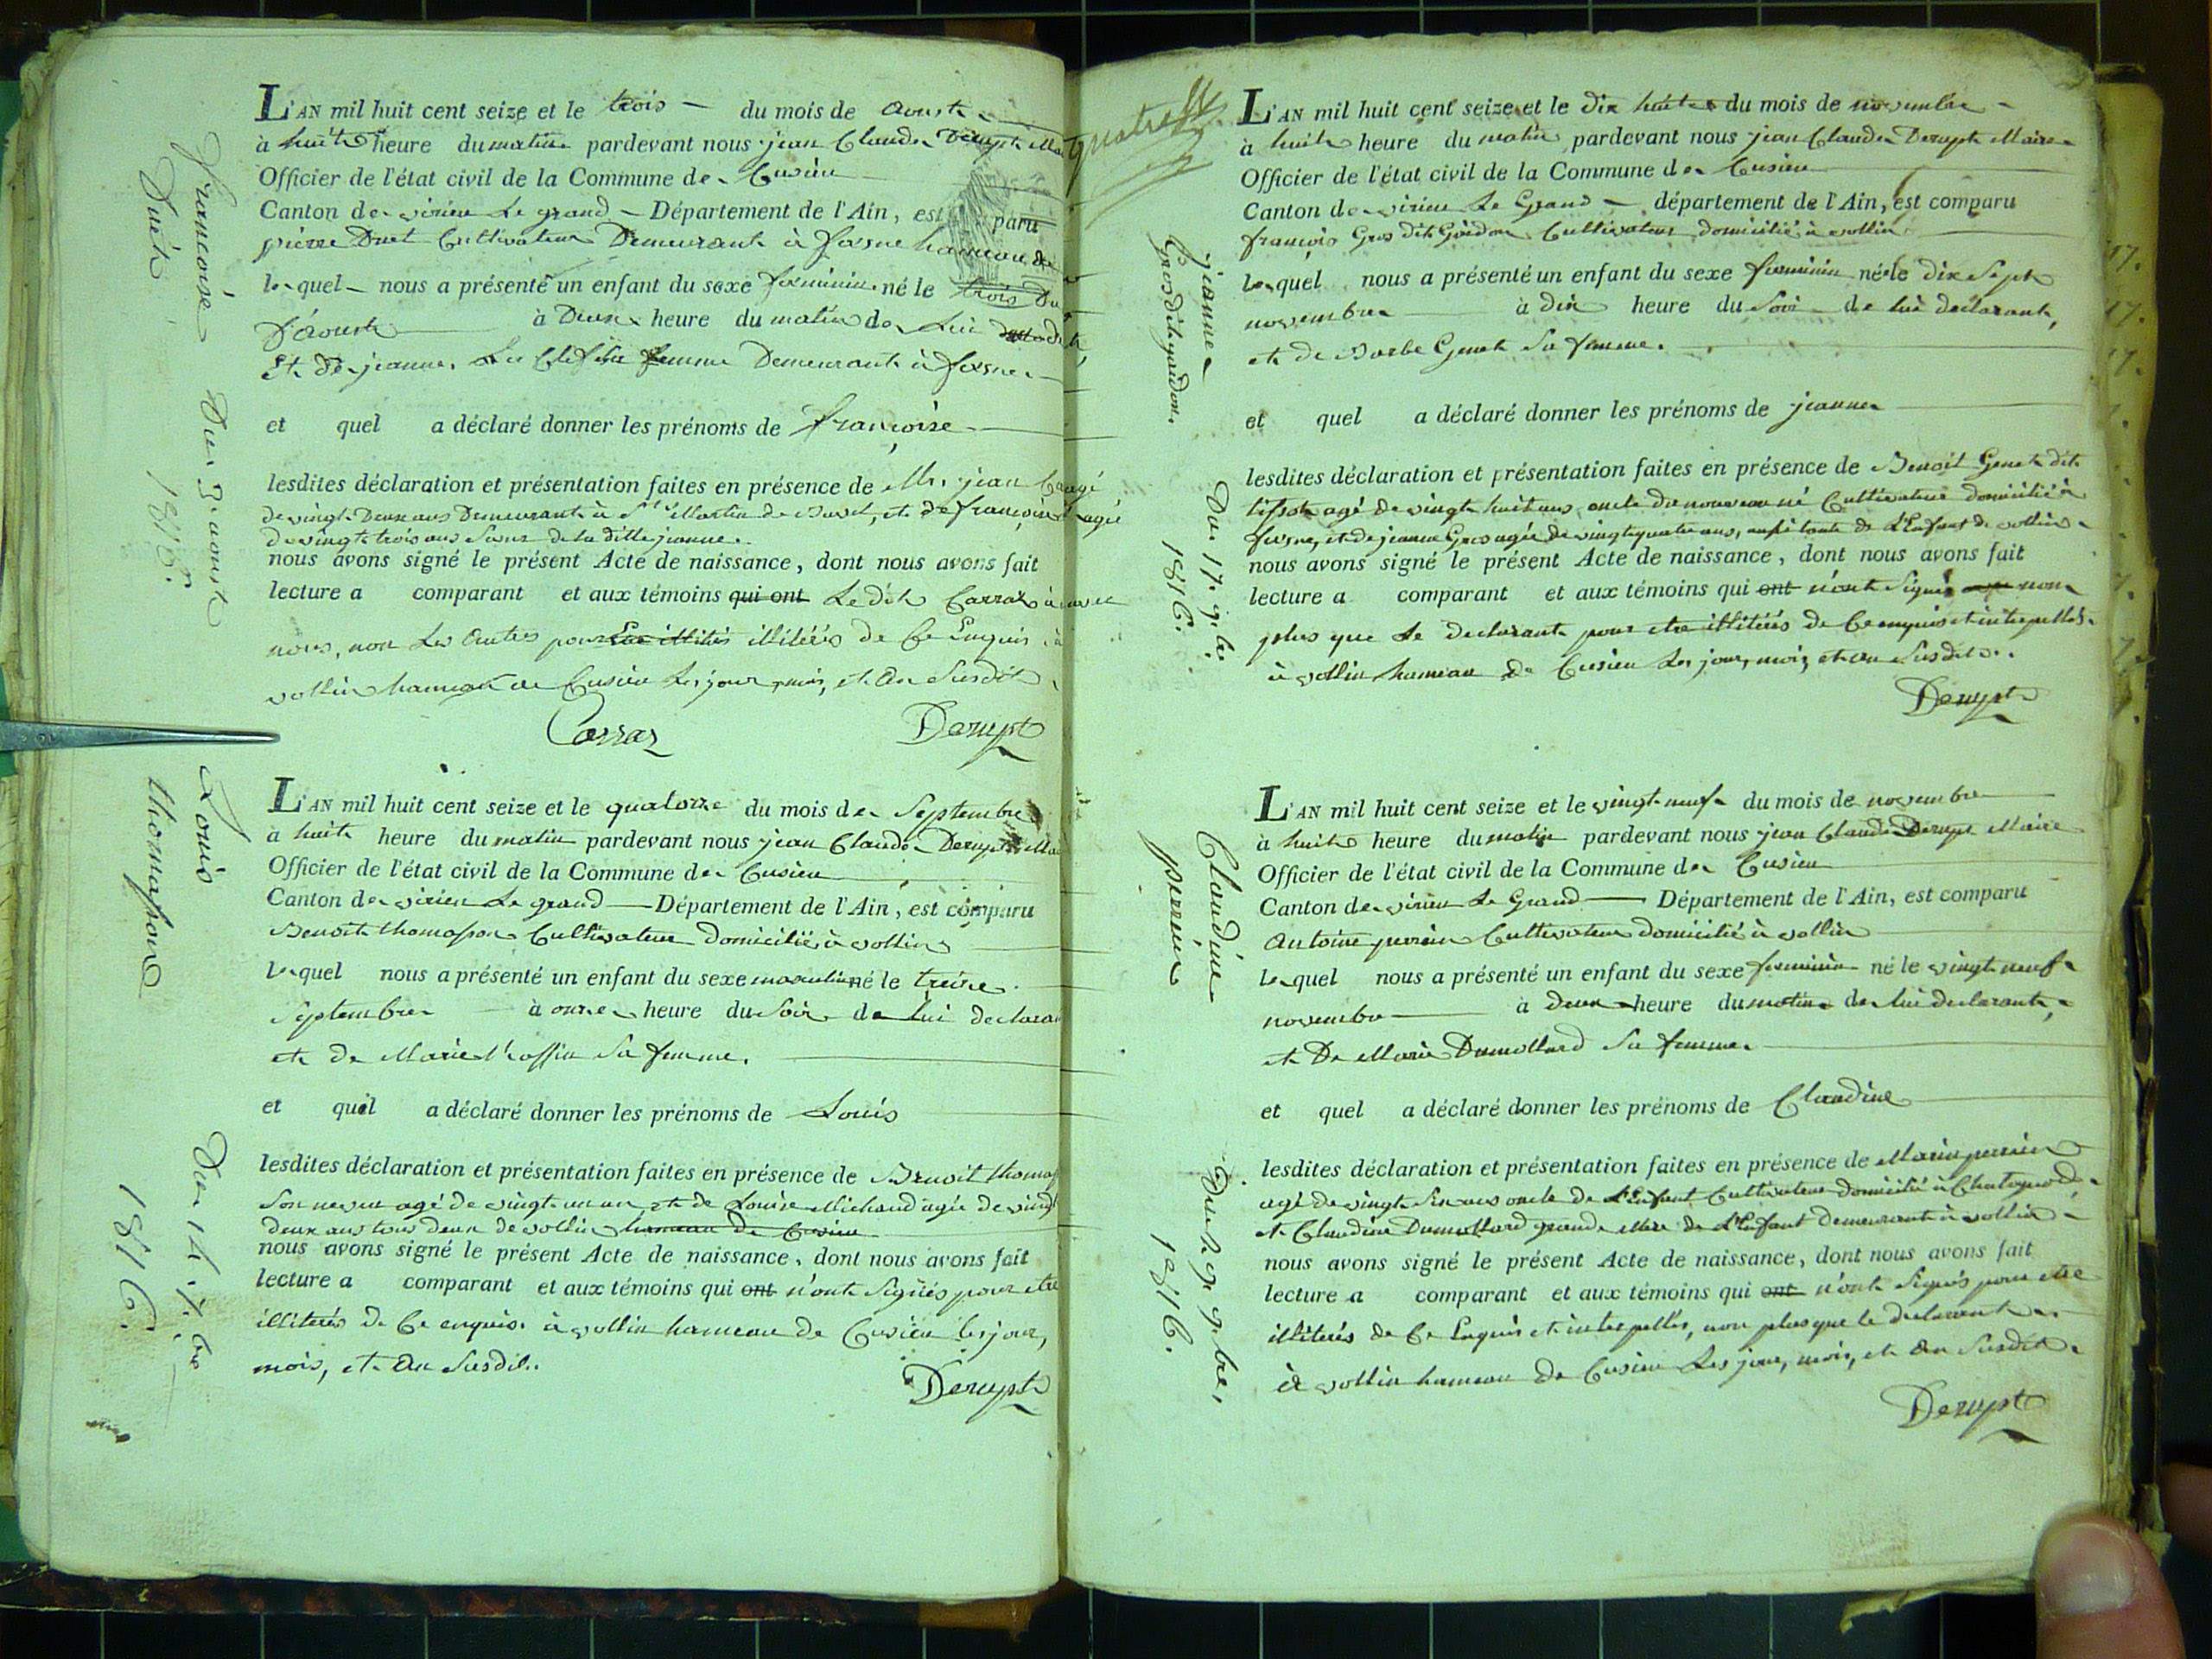 Françoise Du 3 aoust
Duét 1816.
L'AN mil huit cent seize et le trois du mois de aoust
à huit heure du matin pardevant nous jean Claude Derupt
Officier de l'état civil de la Commune de Cusieu
Canton de virieu Le grand Département de l'Ain, est paru
pierre Duet Cultivateur Demeurant à fosne hameau de
lequel nous a présenté un enfant du sexe feminin né le trois Du
D'aoust à Deux heure du matin de Lui
Et de jeanne femme Demeurant à fosne
et quel a déclaré donner les prénoms de françoise
lesdites déclaration et présentation faites en présence de Mr. jean agé
de vingt Deux ans Demeurant à St Martin de Bavel, et de françoise agée
de vingt trois ans Soeur de la dite jeanne.
nous avons signé le présent Acte de naissance, dont nous avons fait
lecture a comparant et aux témoins qui ont Ledit Carraz avec
nous, non Les Autres pour illitérés de Ce Enquis à
vollin hameau de Cusieu Les jour, mois, et An Susdit
Carraz Derupt
Louis Du 14 7.bre
thomasson 1816.
L'AN mil huit cent seize et le quatorze du mois de Septembre
à huit heure du matin pardevant nous jean Claude Derupt
Officier de l'état civil de la Commune de Cusieu
Canton de virieu Le grand Département de l'Ain, est comparu
Benoit thomasson Cultivateur domicilié à vollin
lequel nous a présenté un enfant du sexe masculin né le treize
Septembre à onze heure du Soir de Lui declarant
et de Marie Sa femme.
et quel a déclaré donner les prénoms de Louis
lesdites déclaration et présentation faites en présence de Benoit
Son neveu agé de vingt un an et de Louise Michaud agée de vingt
deux ans tous deux de vollin hameau de Cusieu
nous avons signé le présent Acte de naissance, dont nous avons fait
lecture a comparant et aux témoins qui ont n'ont Signés pour etre
illiterés de Ce enquis. à vollin hameau de Cusieu les jour,
mois, et An Susdit.
Derupt
jeanne Du 17. 9.bre
Gros dit goidon. 1816.
L'AN mil huit cent seize et le dix huit du mois de novembre
à huit heure du matin pardevant nous jean Claude Derupt Maire
Officier de l'état civil de la Commune de Cusieu
Canton de virieu Le Grand département de l'Ain, est comparu
françois Gros dit Goidon Cultivateur domicilié à vollin
lequel nous a présenté un enfant du sexe feminin né le dix Sept
novembre à dix heure du Soir de lui declarant,
et de Barbe Genet Sa femme.
et quel a déclaré donner les prénoms de jeanne
lesdites déclaration et présentation faites en présence de Benoit Genet dit
tissot agé de vingt huit ans oncle du nouveau né Cultivateur domicilié à
fosne, et de jeanne Gros agée de vingt quatre ans, aussi tante de L'Enfant de vollin
nous avons signé le présent Acte de naissance, dont nous avons fait
lecture a comparant et aux témoins qui ont n'ont Signés non
plus que Le declarant pour etre illiterés de Ce enquis et interpellés.
à vollin hameau de Cusieu Les jour, mois, et an Susdits.
Derupt
Claudine Du 29 9.bre,
perrin 1816.
L'AN mil huit cent seize et le vingt neuf du mois de novembre
à huit heure du matin pardevant nous jean Claude Derupt Maire
Officier de l'état civil de la Commune de Cusieu
Canton de virieu Le Grand Département de l'Ain, est comparu
Antoine perrin Cultivateur domicilié à vollin
lequel nous a présenté un enfant du sexe feminin né le vingt neuf
novembre à deux heure du matin de lui declarant,
et De Marie Dumollard Sa femme
et quel a déclaré donner les prénoms de Claudine
lesdites déclaration et présentation faites en présence de Marin perrin
agé de vingt Six ans oncle de L'Enfant Cultivateur domicilié à
et Claudine Dumollard grande Mere de L'Enfant demeurant à vollin
nous avons signé le présent Acte de naissance, dont nous avons fait
lecture a comparant et aux témoins qui ont n'ont Signés pour etre
illiterés de Ce Enquis et interpellés, non plus que le declarant
à vollin hameau de Cusieu Les jour, mois, et An Susdit
Derupt